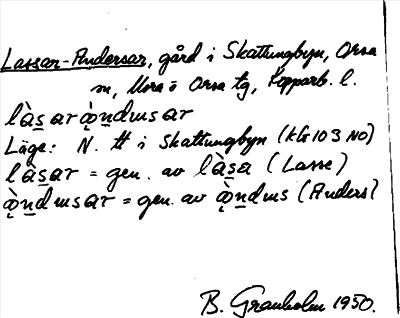 Lassar-Andersar, gård i Skattungbyn, Orsa
sn, Mora o Orsa tg, Kopparb. l.
làsar ą̀ndusar
Läge: N. tt i Skattungbyn (kls 103 NO)
làsar = gen. av làsa (Lasse)
ą̀ndusar = gen. av ą̀ndus (Anders)
B. Granholm 1950.